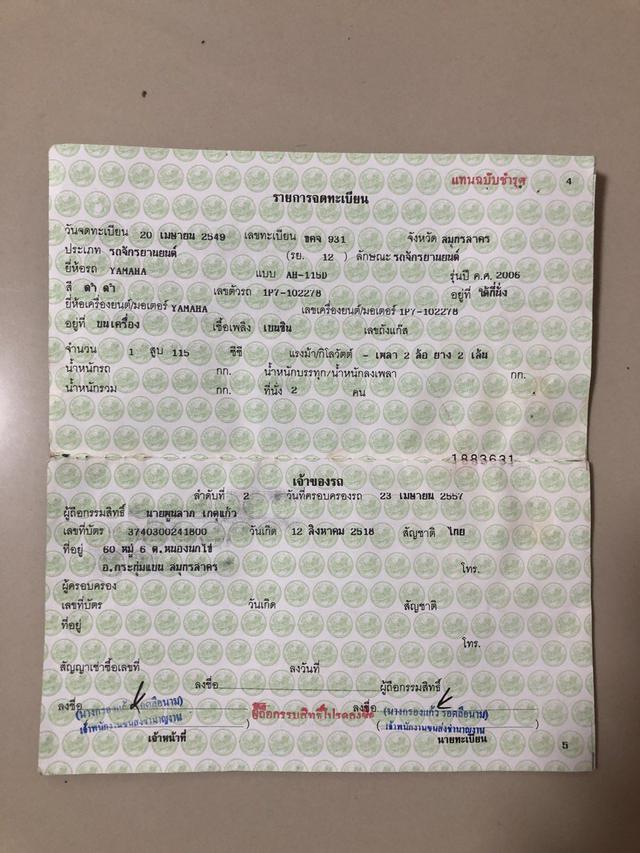 แทนฉบับชำรุด 4
รายการจดทะเบียน
วันจดทะเบียน 20 เมษายน 2549 เลขทะเบียน ขคจ 931 จังหวัด สมุทรสาคร
ประเภท รถจักรยานยนต์ (รย. 12 ) ลักษณะ รถจักรยานยนต์
ยี่ห้อรถ YAMAHA แบบ AH-115D รุ่นปี ค.ศ. 2006
สี ดำ ดำ เลขตัวรถ 1P7-102278 อยู่ที่ ใต้ที่นั่ง
ยี่ห้อเครื่องยนต์/มอเตอร์ YAMAHA เลขเครื่องยนต์/มอเตอร์ 1P7-102278
อยู่ที่ บนเครื่อง เชื้อเพลิง เบนซิน เลขถังแก๊ส
จำนวน 1 สูบ 115 ซีซี แรงม้า/กิโลวัตต์ - เพลา 2 ล้อ ยาง 2 เส้น
น้ำหนักรถ กก. น้ำหนักบรรทุก/น้ำหนักลงเพลา กก.
น้ำหนักรวม กก. ที่นั่ง 2 คน
1883631
เจ้าของรถ
ลำดับที่ 2 วันที่ครอบครองรถ 23 เมษายน 2557
ผู้ถือกรรมสิทธิ์ นายพูนลาภ เกตุแก้ว
เลขที่บัตร 3740300241800 วันเกิด 12 สิงหาคม 2518 สัญชาติ ไทย
ที่อยู่ 60 หมู่ 6 ต.หนองนกไข่
อ.กระทุ่มแบน สมุทรสาคร โทร.
ผู้ครอบครอง
เลขที่บัตร วันเกิด สัญชาติ
ที่อยู่
โทร.
สัญญาเช่าซื้อเลขที่ ลงวันที่
ลงชื่อ ผู้ถือกรรมสิทธิ์
ลงชื่อ ผู้ถือกรรมสิทธิ์โปรดลงชื่อ ลงชื่อ
(นางกรองแก้ว รอดลือนาม) (นางกรองแก้ว รอดลือนาม)
เจ้าพนักงานขนส่งชำนาญงาน ) เจ้าพนักงานขนส่งชำนาญงาน )
เจ้าหน้าที่ นายทะเบียน
5